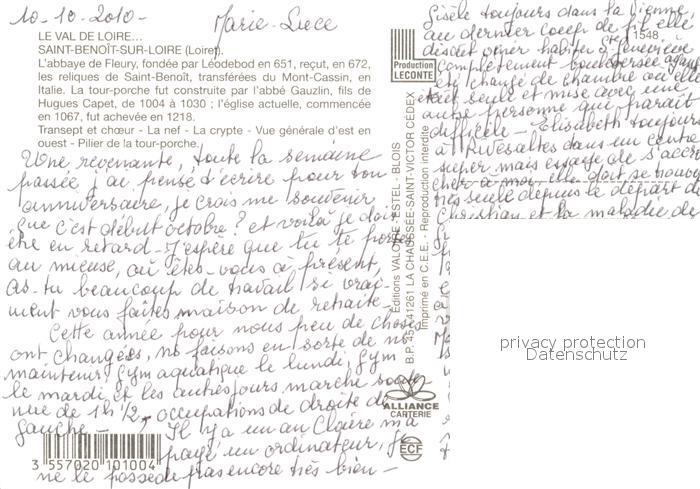 10-10-2010-
Marie-Luce
LE VAL DE LOIRE...
SAINT-BENOÎT-SUR-LOIRE (Loiret).
L'abbaye de Fleury, fondée par Léodebod en 651, reçut, en 672,
les reliques de Saint-Benoît, transférées du Mont-Cassin, en
Italie. La tour-porche fut construite par l'abbé Gauzlin, fils de
Hugues Capet, de 1004 à 1030 ; l'église actuelle, commencée
en 1067, fut achevée en 1218.
Transept et chœur - La nef - La crypte - Vue générale d'est en
ouest - Pilier de la tour-porche.
Une revenante, toute la semaine
passée j'ai pensé d'écrire pour ton
anniversaire, je crois me souvenir
que c'est début octobre? et voilà je dois
être en retard - J'espère que tu te portes
au mieux, où êtes-vous à présent,
as-tu beaucoup de travail si vrai-
ment vous faites maison de retraite -
Cette année pour nous peu de choses
ont changées, ns faisons en sorte de ns
maintenir! Gym aquatique le lundi, Gym
le mardi et les autres jours marche soute
nue de 1h 1/2, occupations de droite de
gauche - Il y a un an Claire m'a
payé un ordinateur, je
ne le possède pas encore très bien -
3 557020 101004
Production
LECONTE
1548
Editions VALOIRE - ESTEL - BLOIS
B.P. 45 - 41261 LA CHAUSSÉE-SAINT-VICTOR CEDEX
Imprimé en C.E.E. - Reproduction interdite
ALLIANCE
CARTERIE
ECF
Gisèle toujours dans la Vienne
au dernier coup de fil elle
disait habiter à Geneviève
complètement bouleversée ayant
été changé de chambre où elle
était seule et mise avec une
autre personne qui paraît
difficile - Elisabeth toujours
à Rivesaltes dans un
super mais essaye de s'accro
cher à moi, elle doit se trouver
très seule depuis le départ de
Christian et la maladie de
privacy protection
Datenschutz